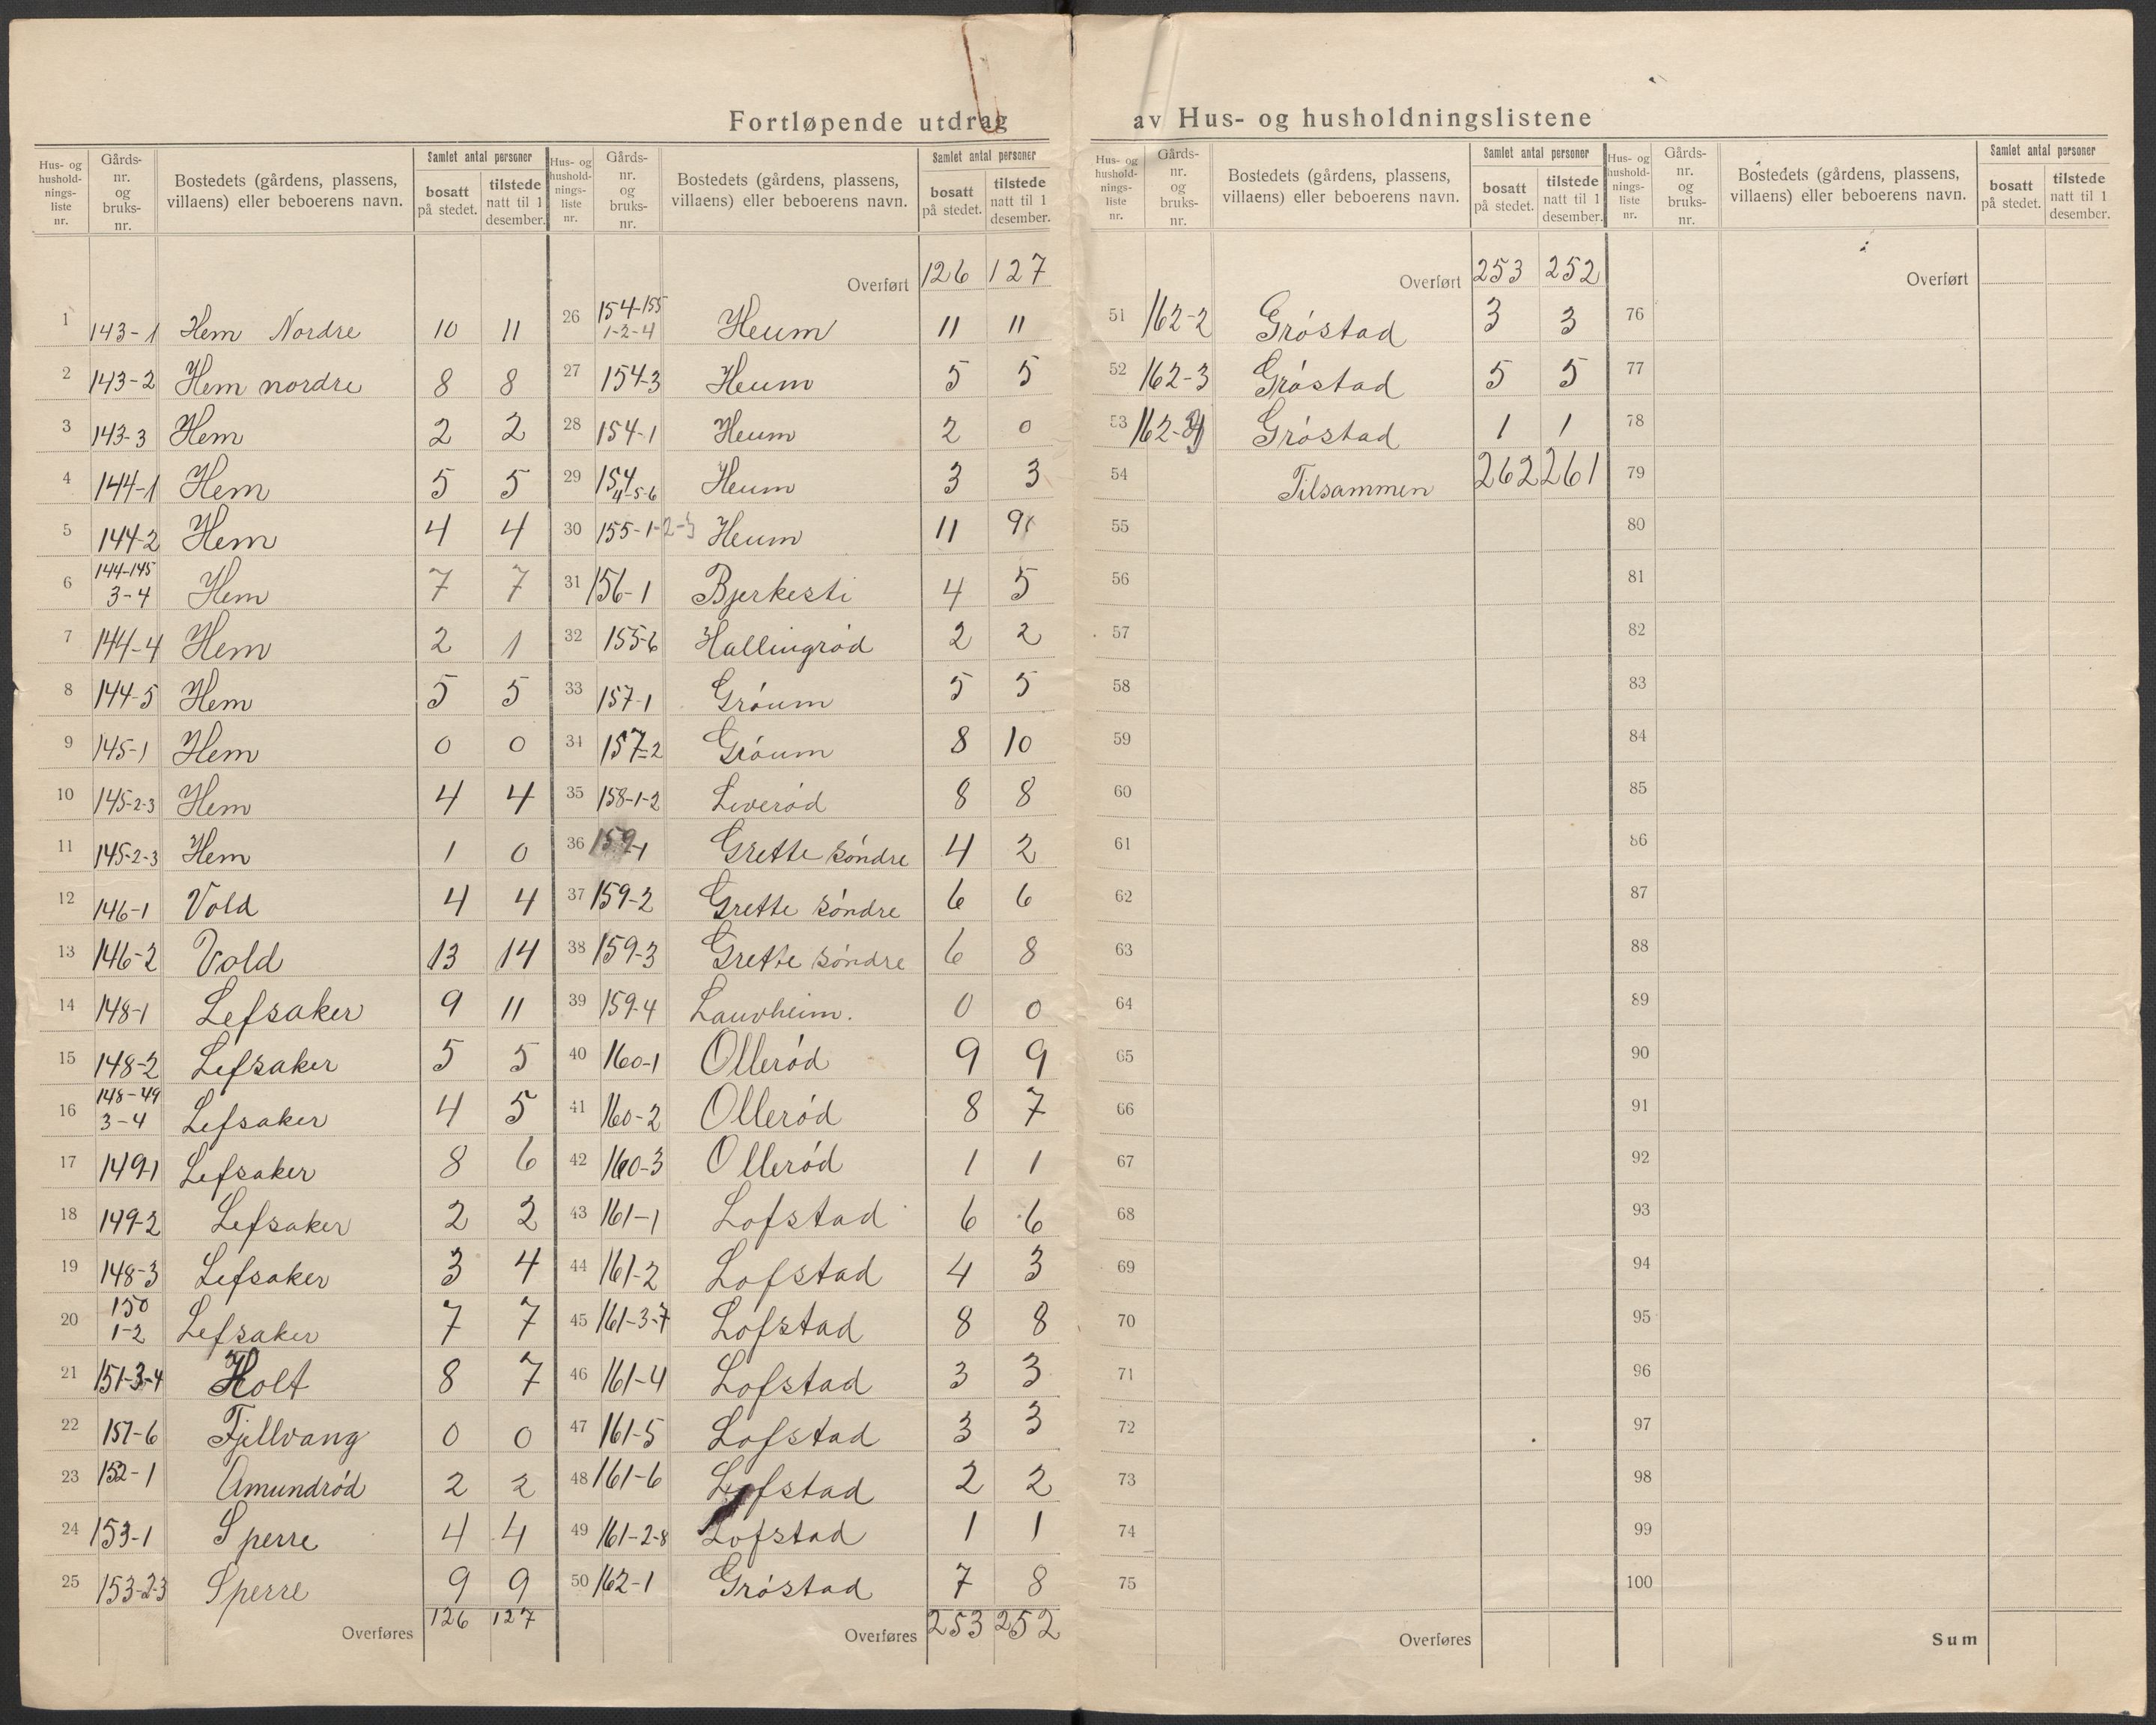 Fortløpende utdrag av Hus- og husholdningslistene
Hus- og hushold-nings-liste nr. | Gårds-nr. og bruks-nr. | Bostedets (gårdens, plassens, villaens) eller beboerens navn. | Samlet antal personer | bosatt på stedet. | tilstede natt til 1 desember.
1 143-1 Hem Nordre 10 11
2 143-2 Hem nordre 8 8
3 143-3 Hem 2 2
4 144-1 Hem 5 5
5 144-2 Hem 4 4
6 144-145 3-4 Hem 7 7
7 144-4 Hem 2 1
8 144-5 Hem 5 5
9 145-1 Hem 0 0
10 145-2-3 Hem 4 4
11 145-2-3 Hem 1 0
12 146-1 Vold 4 4
13 146-2 Vold 13 14
14 148-1 Lefsaker 9 11
15 148-2 Lefsaker 5 5
16 148-49 3-4 Lefsaker 4 5
17 149-1 Lefsaker 8 6
18 149-2 Lefsaker 2 2
19 148-3 Lefsaker 3 4
20 150 1-2 Lefsaker 7 7
21 151-3-4 Holt 8 7
22 151-6 Fjellvang 0 0
23 152-1 Amundrød 2 2
24 153-1 Sperre 4 4
25 153-2-3 Sperre 9 9
Overføres 126 127
Hus- og hushold-nings-liste nr. | Gårds-nr. og bruks-nr. | Bostedets (gårdens, plassens, villaens) eller beboerens navn. | Samlet antal personer | bosatt på stedet. | tilstede natt til 1 desember.
Overført 126 127
26 154-155 1-2-4 Heum 11 11
27 154-3 Heum 5 5
28 154-1 Heum 2 0
29 154 4-5-6 Heum 3 3
30 155-1-2-3 Heum 11 9
31 156-1 Bjerkesti 4 5
32 155-6 Hallingrød 2 2
33 157-1 Grøum 5 5
34 157-2 Grøum 8 10
35 158-1-2 Liverød 8 8
36 159-1 Grette Søndre 4 2
37 159-2 Grette Søndre 6 6
38 159-3 Grette Søndre 6 8
39 159-4 Lauvheim. 0 0
40 160-1 Ollerød 9 9
41 160-2 Ollerød 8 7
42 160-3 Ollerød 1 1
43 161-1 Lofstad 6 6
44 161-2 Lofstad 4 3
45 161-3-7 Lofstad 8 8
46 161-4 Lofstad 3 3
47 161-5 Lofstad 3 3
48 161-6 Lofstad 2 2
49 161-2-8 Lofstad 1 1
50 162-1 Grøstad 7 8
Overføres 253 252
Hus- og hushold-nings-liste nr. | Gårds-nr. og bruks-nr. | Bostedets (gårdens, plassens, villaens) eller beboerens navn. | Samlet antal personer | bosatt på stedet. | tilstede natt til 1 desember.
Overført 253 252
51 162-2 Grøstad 3 3
52 162-3 Grøstad 5 5
53 162-4 Grøstad 1 1
54 Tilsammen 262 261
55
56
57
58
59
60
61
62
63
64
65
66
67
68
69
70
71
72
73
74
75
Overføres
Hus- og hushold-nings-liste nr. | Gårds-nr. og bruks-nr. | Bostedets (gårdens, plassens, villaens) eller beboerens navn. | Samlet antal personer | bosatt på stedet. | tilstede natt til 1 desember.
Overført
76
77
78
79
80
81
82
83
84
85
86
87
88
89
90
91
92
93
94
95
96
97
98
99
100
Sum